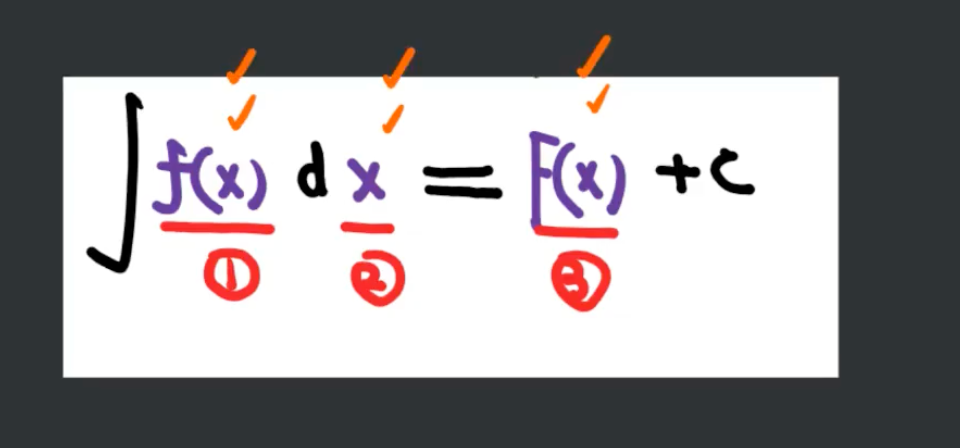 ∫ f(x) d x = F(x) + c
① ② ③